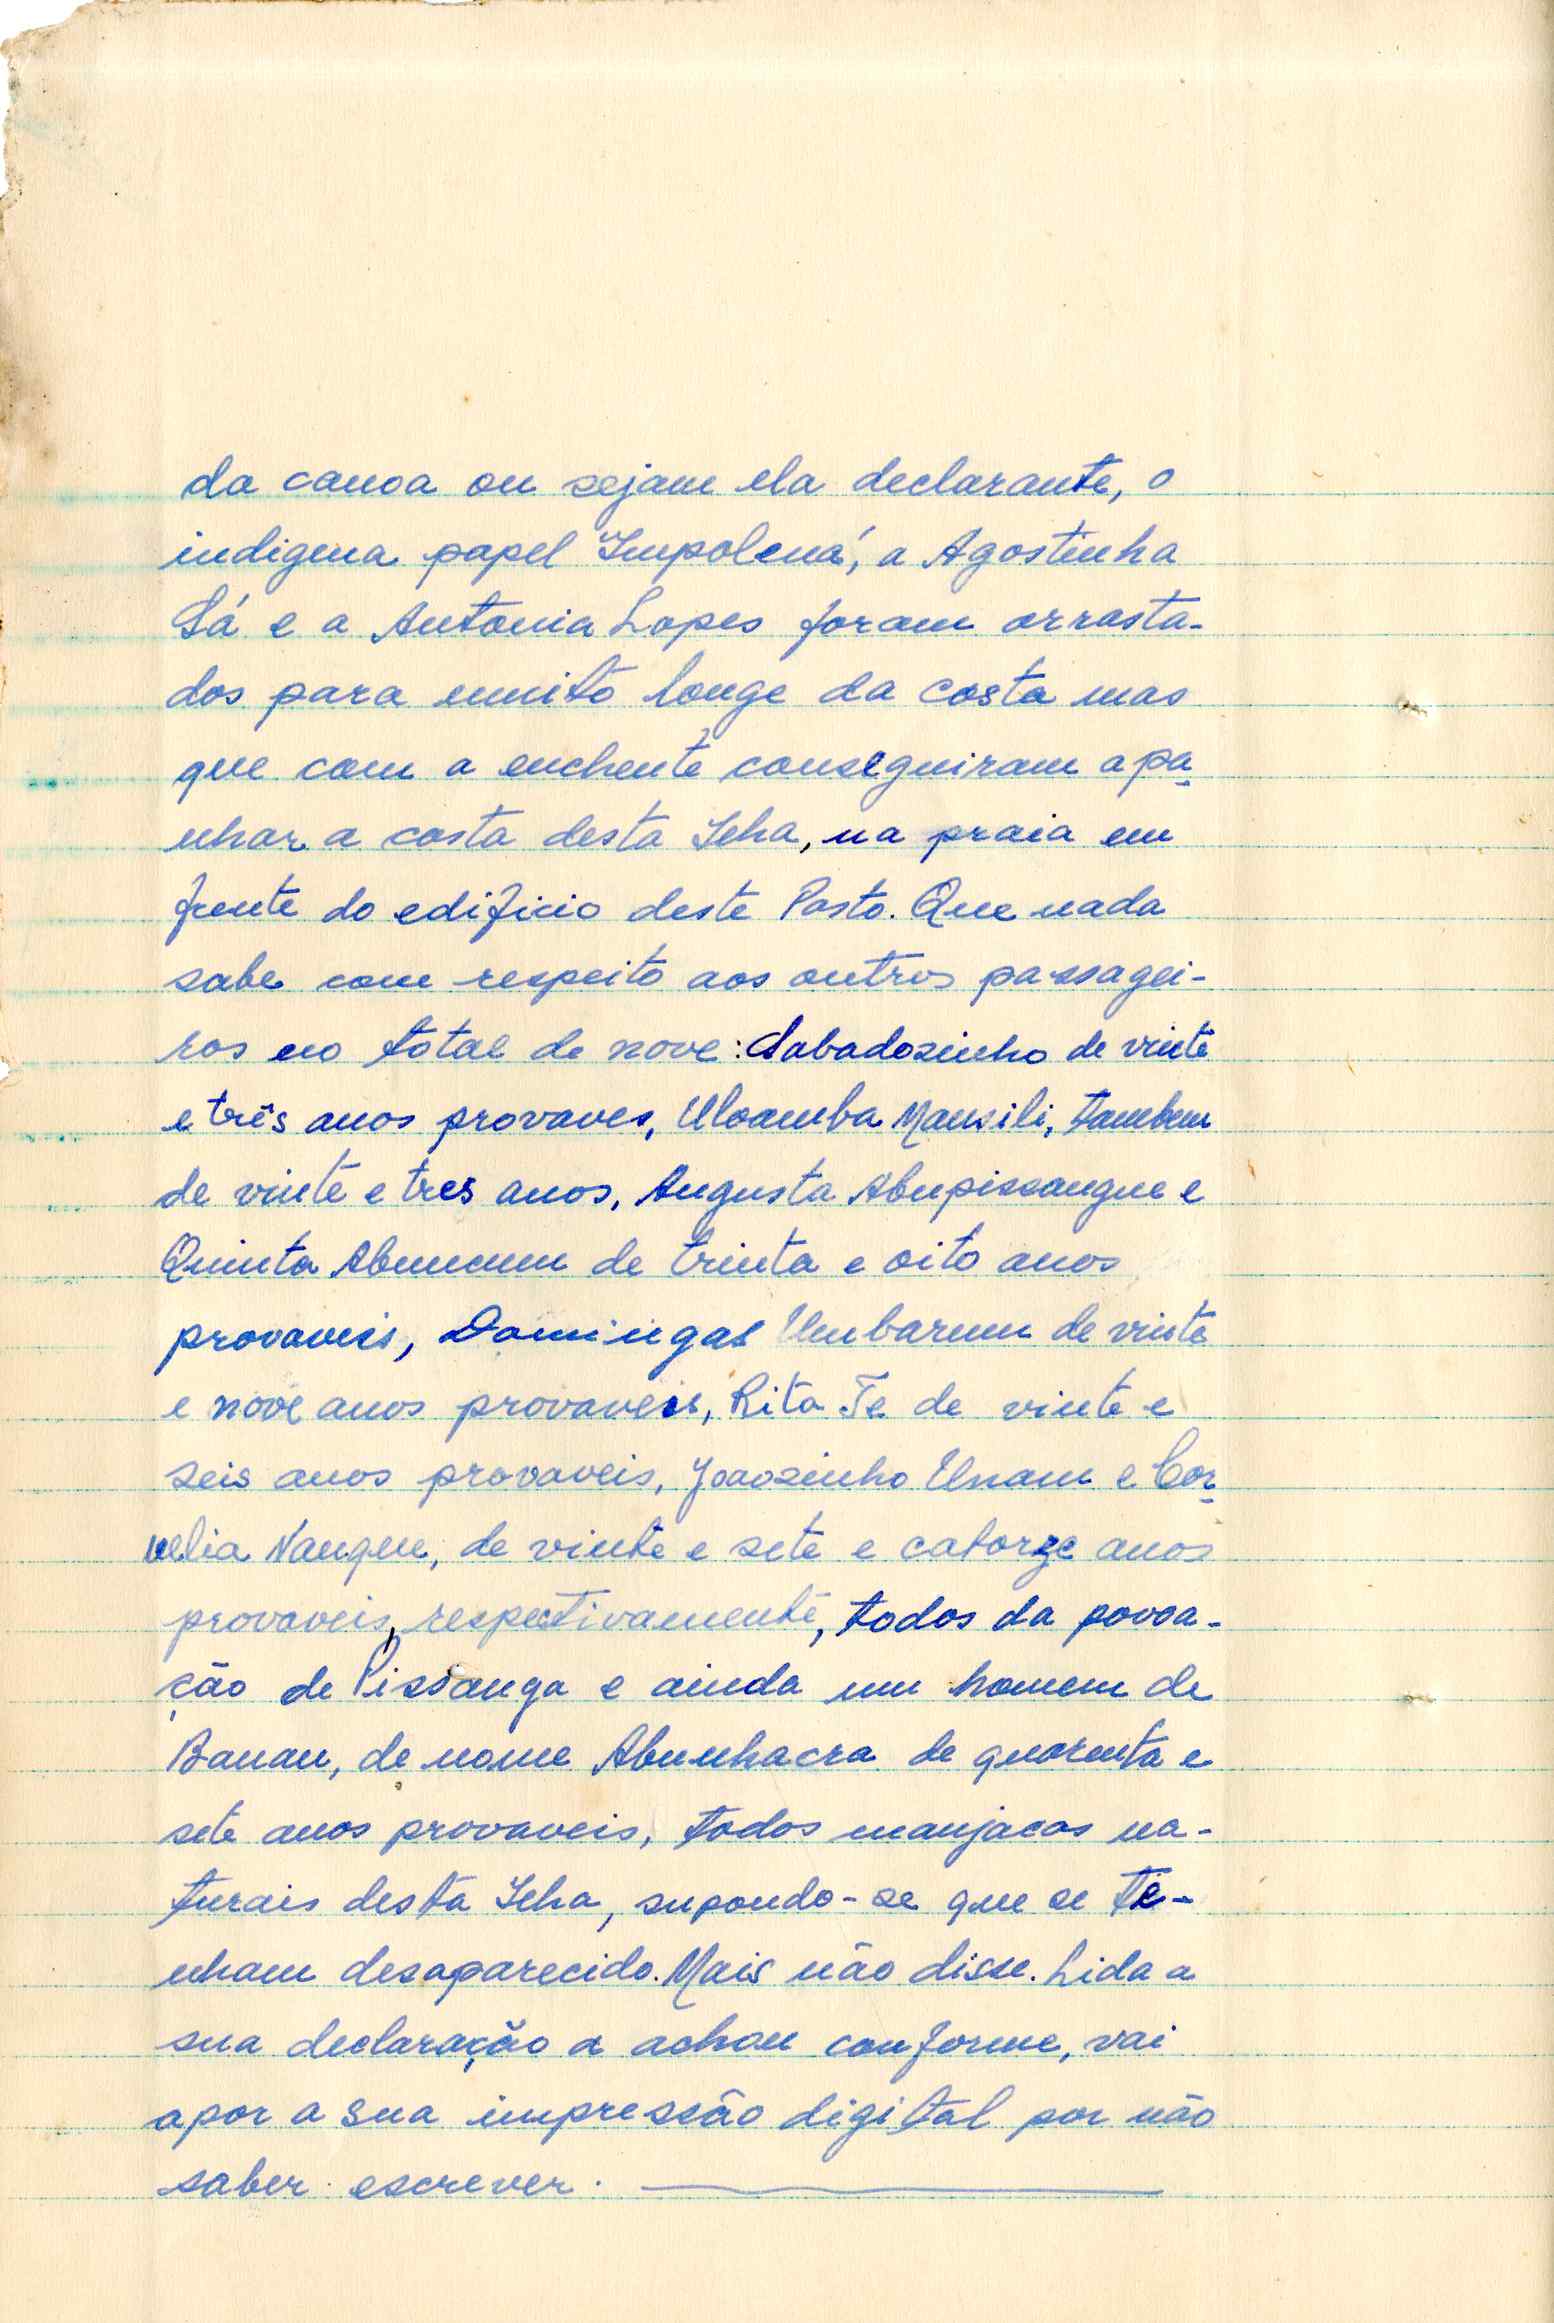 da canoa ou sejam ela declarante, o
indigena papel "Impolená", a Agostinha
Sá e a Antonia Lopes foram arrasta-
dos para muito longe da costa mas
que com a enchente conseguiram apa-
nhar a costa desta Ilha, na praia em
frente do edificio deste Posto. Que nada
sabe com respeito aos outros passagei-
ros no total de nove: Sabadozinho de vinte
e três anos provaves, Uloamba Mansili, tambem
de vinte e tres anos, Augusta Abupissangue e
Quinta Abumcum de trinta e oito anos
provaveis, Domingas Umbarum de vinte
e nove anos provaveis, Rita Te de vinte e
seis anos provaveis, Joaozinho Unam e Cor-
nelia Nangue, de vinte e sete e catorze anos
provaveis, respectivamente, todos da povoa-
ção de Pissanga e ainda um homem de
Banan, de nome Abunhacra de quarenta e
sete anos provaveis, todos manjacos na-
turais desta Ilha, supondo-se que se te-
nham desaparecido. Mais não disse. Lida a
sua declaração a achou conforme, vai
apor a sua impressão digital por não
saber escrever.